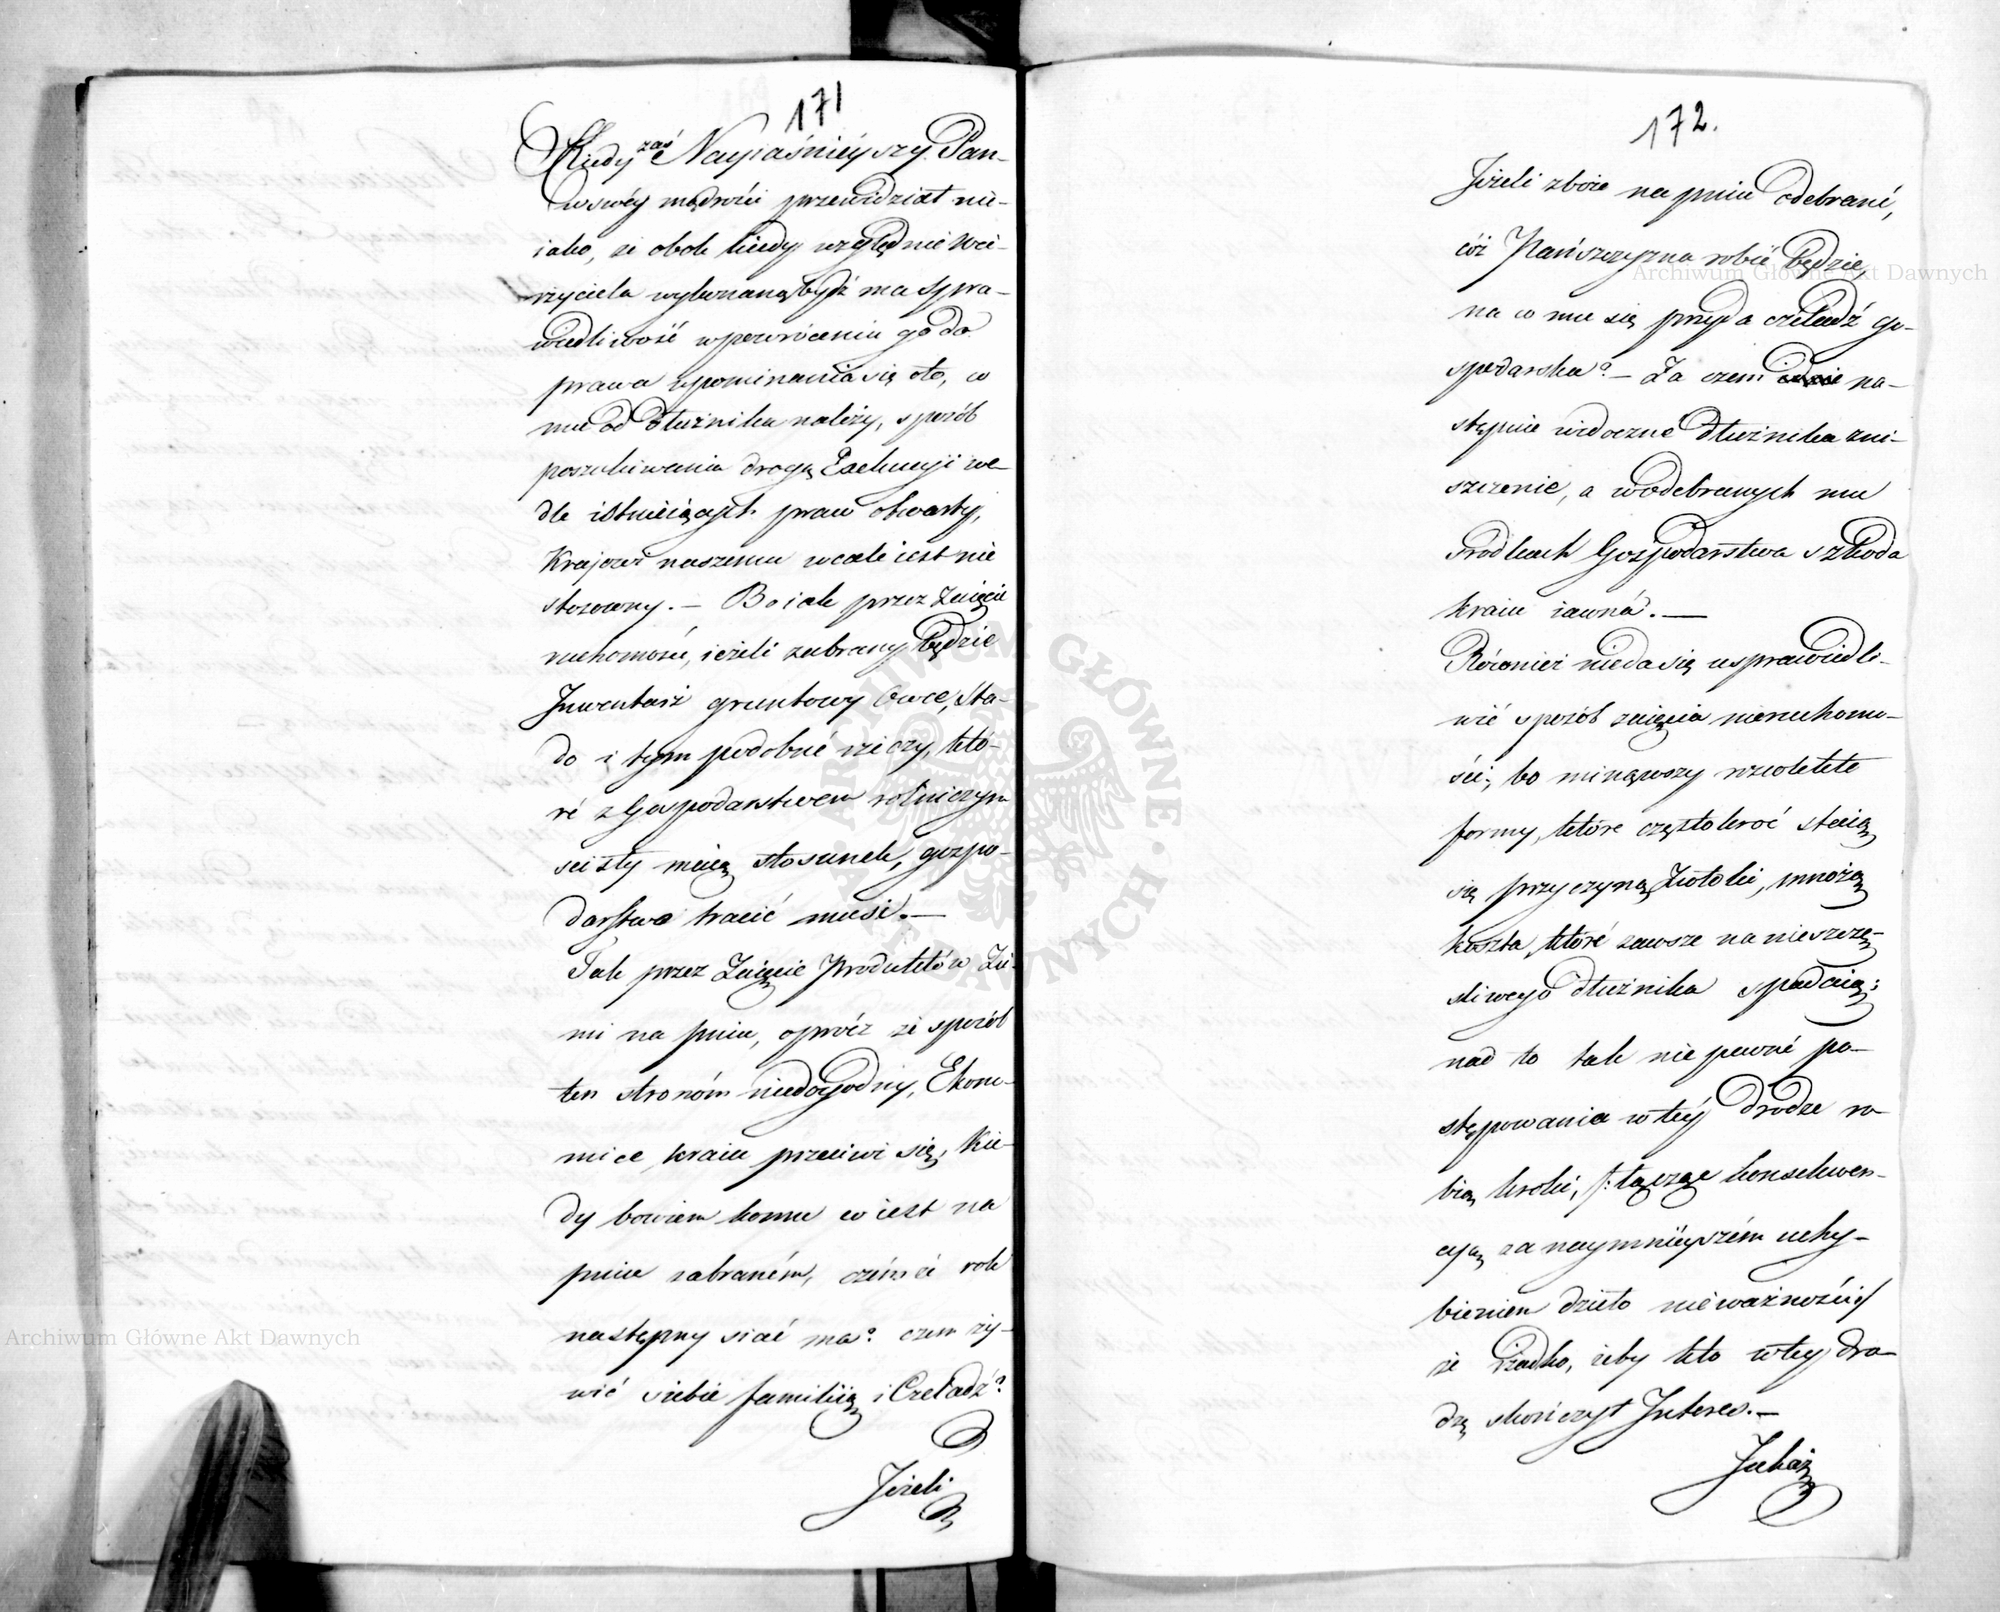 171
Kiedy zaś Nayiaśnieyszy Pan
w swéy mądrości przewidział nie-
iako, że obok kiedy względnie Wie-
rzyciela wykonaną bydź ma spra-
wiedliwość w powróceniu go do
prawa upominania się oto, co
mu od dłużnika należy, sposób
poszukiwania drogą Exekucyi we-
dle istnieiących praw otwarty,
Krajowi naszemu wcale iest nie
stosowny. — Bo iak przez Zaięcie
ruchomości, ieżeli zabrany będzie
Inwentarz gruntowy Owce, Sta-
do i tym podobné rzeczy, któ-
ré z Gospodarstwem rolniczym
ścisły maią stosunek, gospo-
darstwo tracić musi. —
Tak przez Zaięcie Produktów Zie-
mi na pniu, oprócz że sposób
ten stronóm niedogodny, Ekono-
mice kraiu przeciwi się, Kie-
dy bowiem komu co iest na
pniu zabraném, czémże rok
następny siać ma? czem ży-
wić siebie familiią i Czeladź?
Jeżeli
172.
Jeżeli zboże na pniu odebrané,
cóż Pańszczyzna robić będzie,
na co mu się przyda czeladź go-
spodarska? — Za czem idzie na-
stępnie widoczné dłużnika zni-
szczenie, a w odebranych mu
środkach Gospodarstwa szkoda
kraiu iawná. —
Rówmież nieda się usprawiedli-
wić sposób zaięcia nieruchomo-
ści, bo minąwszy rozwlekłe
formy, które częstokroć staią
się przyczyną Zwłoki, mnożą
koszta, któré zawsze na nieszczę-
śliwego dłużnika spadaią;
nad to tak nie pewné po-
stępowania w téy drodze ro-
bią kroki, /: łącząc konsekwen-
cyą za naymnieyszém uchy-
bieniem dzieło nieważności :/
że rzadko, żeby kto w téy dro-
dzę skończył Interes. —
Jakáż
Archiwum Główne Akt Dawnych
Archiwum Główne Akt Dawnych
ARCHIWUM GŁÓWNE AKT DAWNYCH